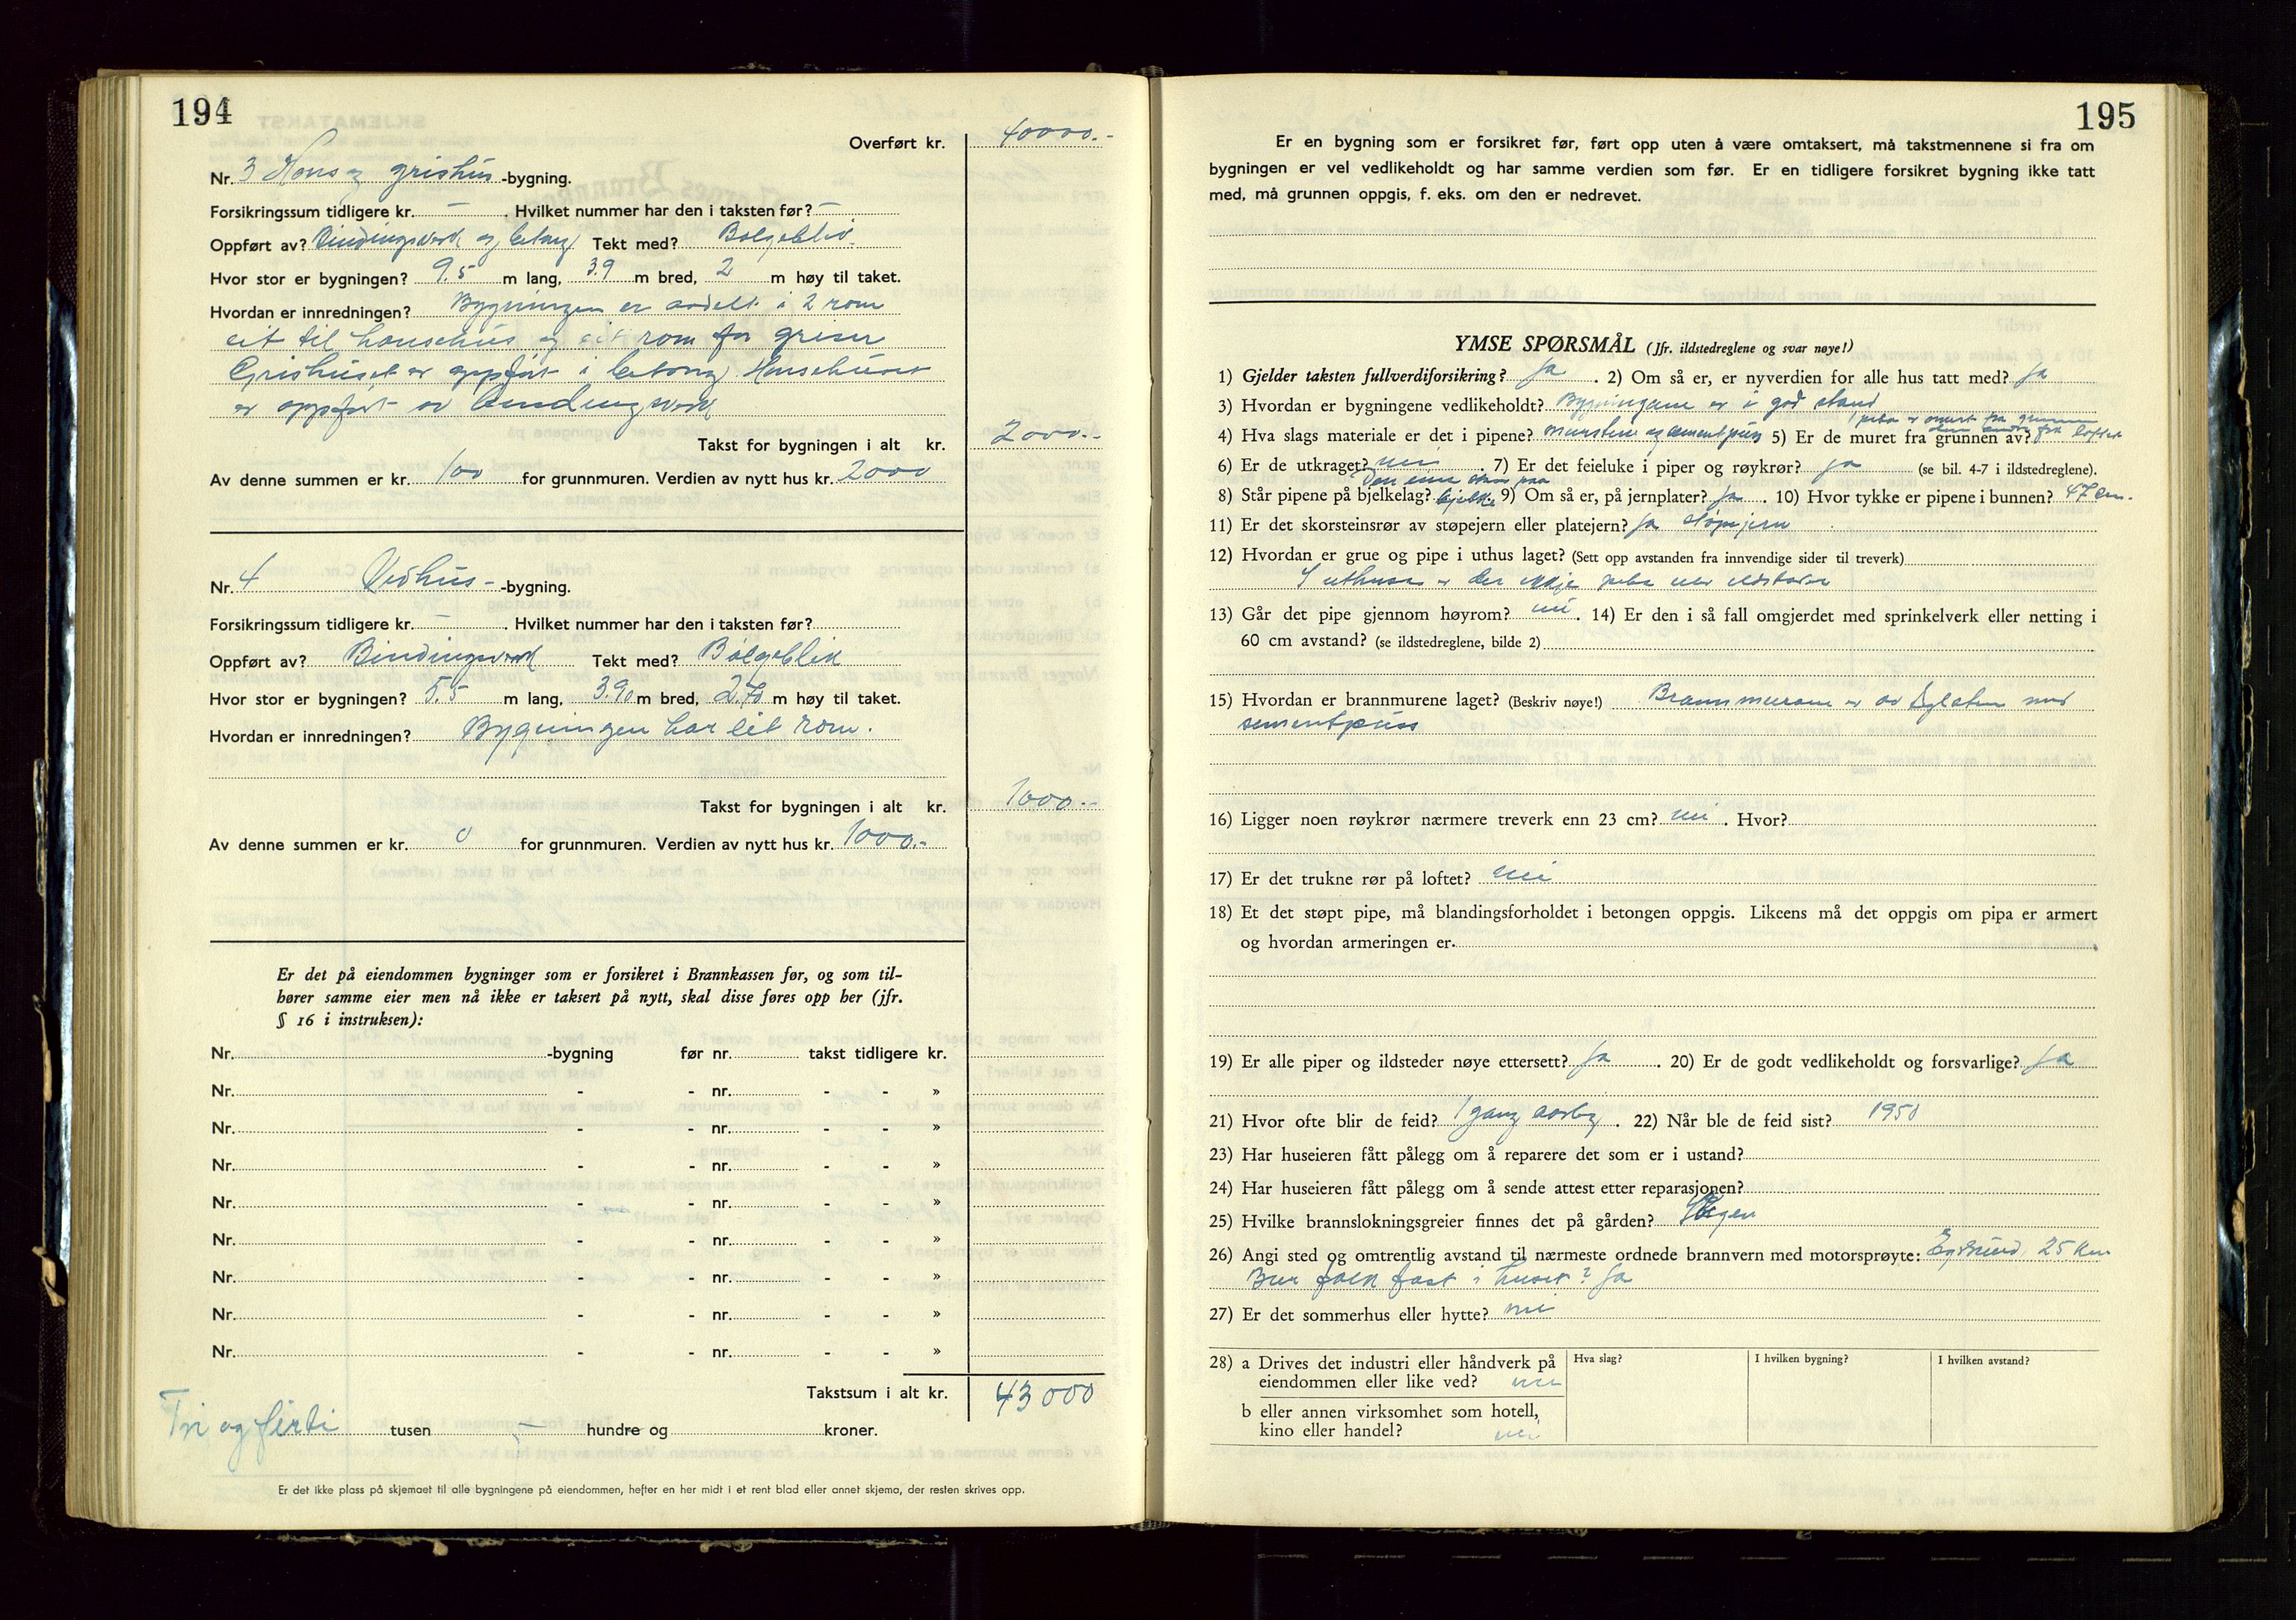 194
Overført kr. 40000.-
Nr. 3 Høns og grishus -bygning.
Forsikringssum tidligere kr. – . Hvilket nummer har den i taksten før? –
Oppført av? Bindingsverk og betong Tekt med? Bølgeblik
Hvor stor er bygningen? 9.5 m lang, 3.9 m bred, 2 m høy til taket.
Hvordan er innredningen? Bygningen er avdelt i 2 rom
eit til hønsehus og eit rom for griser
Grishuset er oppført i betong. Hønsehuset
er oppført av bindingsverk
Takst for bygningen i alt kr. 2000.-
Av denne summen er kr. 100 for grunnmuren. Verdien av nytt hus kr. 2000
Nr. 4 Vedhus- -bygning.
Forsikringssum tidligere kr. – . Hvilket nummer har den i taksten før?
Oppført av? Bindingsverk Tekt med? Bølgeblik
Hvor stor er bygningen? 5.5 m lang, 3.90 m bred, 2.70 m høy til taket.
Hvordan er innredningen? Bygningen har eit rom.
Takst for bygningen i alt kr. 1000.-
Av denne summen er kr. 0 for grunnmuren. Verdien av nytt hus kr. 1000.-
Er det på eiendommen bygninger som er forsikret i Brannkassen før, og som til-
hører samme eier men nå ikke er taksert på nytt, skal disse føres opp her (jfr.
§ 16 i instruksen):
Nr. -bygning før nr. takst tidligere kr.
Nr. - - nr. - - »
Nr. - - nr. - - »
Nr. - - nr. - - »
Nr. - - nr. - - »
Nr. - - nr. - - »
Nr. - - nr. - - »
Nr. - - nr. - - »
Nr. - - nr. - - »
Takstsum i alt kr. 43000
Tri og førti tusen – hundre og kroner.
Er det ikke plass på skjemaet til alle bygningene på eiendommen, hefter en her midt i et rent blad eller annet skjema, der resten skrives opp.
195
Er en bygning som er forsikret før, ført opp uten å være omtaksert, må takstmennene si fra om
bygningen er vel vedlikeholdt og har samme verdien som før. Er en tidligere forsikret bygning ikke tatt
med, må grunnen oppgis, f. eks. om den er nedrevet.
YMSE SPØRSMÅL (Jfr. ildstedreglene og svar nøye!)
1) Gjelder taksten fullverdiforsikring? Ja . 2) Om så er, er nyverdien for alle hus tatt med? Ja
3) Hvordan er bygningene vedlikeholdt? Bygningane er i god stand
1 pipa er muret fra grunnen
4) Hva slags materiale er det i pipene? murstein og cementpuss 5) Er de muret fra grunnen av? den andre fra loftet
6) Er de utkraget? nei . 7) Er det feieluke i piper og røykrør? ja (se bil. 4-7 i ildstedreglene).
Den eine står paa
8) Står pipene på bjelkelag? bjelke 9) Om så er, på jernplater? Ja . 10) Hvor tykke er pipene i bunnen? 47 cm.
11) Er det skorsteinsrør av støpejern eller platejern? Ja støpejern
12) Hvordan er grue og pipe i uthus laget? (Sett opp avstanden fra innvendige sider til treverk)
I uthusa er der ikkje pipe eller eldstader
13) Går det pipe gjennom høyrom? nei . 14) Er den i så fall omgjerdet med sprinkelverk eller netting i
60 cm avstand? (se ildstedreglene, bilde 2)
15) Hvordan er brannmurene laget? (Beskriv nøye!) Brannmurane er av med
sementpuss
16) Ligger noen røykrør nærmere treverk enn 23 cm? nei . Hvor?
17) Er det trukne rør på loftet? nei
18) Et det støpt pipe, må blandingsforholdet i betongen oppgis. Likeens må det oppgis om pipa er armert
og hvordan armeringen er.
19) Er alle piper og ildsteder nøye ettersett? Ja . 20) Er de godt vedlikeholdt og forsvarlige? Ja
21) Hvor ofte blir de feid? 1 gang aarleg . 22) Når ble de feid sist? 1950
23) Har huseieren fått pålegg om å reparere det som er i ustand?
24) Har huseieren fått pålegg om å sende attest etter reparasjonen?
25) Hvilke brannslokningsgreier finnes det på gården? Ingen
26) Angi sted og omtrentlig avstand til nærmeste ordnede brannvern med motorsprøyte: Egersund, 25 km
Bur folk fast i huset? Ja
27) Er det sommerhus eller hytte? nei
28) a Drives det industri eller håndverk på
eiendommen eller like ved? nei
Hva slag?
I hvilken bygning?
I hvilken avstand?
b eller annen virksomhet som hotell,
kino eller handel? nei